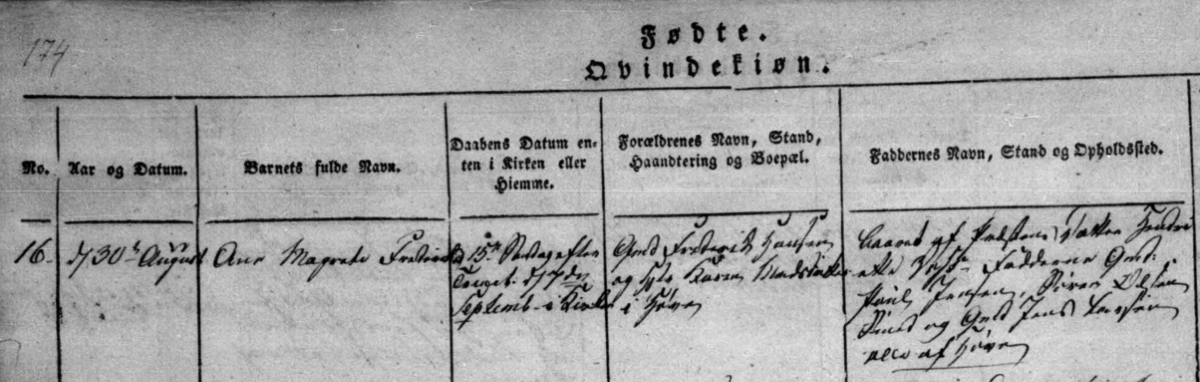 174
Fødte.
Qvindekiøn.
No.
Aar og Datum.
Barnets fulde Navn.
Daabens Datum en-
ten i Kirken eller
Hiemme.
Forældrenes Navn, Stand,
Haandtering og Boepæl.
Faddernes Navn, Stand og Opholdssted.
16.
d/30t August
Ane Magrete Frederiks
15de Søndag efter
Trinit. d/7de
Septemb. i Kirken
Gmd Frederik Hansen
og Karen Madsdatter
i Høve
baaret af Datter
Fadderne Gmd.
Poul Jensen, Søren Olsen
Smed og Gmd Jens Larsen
alle af Høve